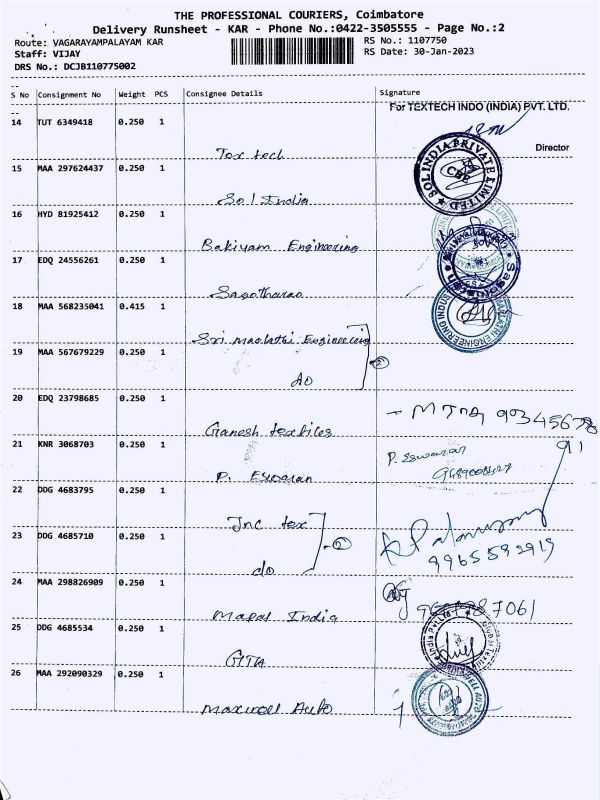 THE PROFESSIONAL COURIERS, Coimbatore
Delivery Runsheet - KAR - Phone No.:0422-3505555 - Page No.:2
Route: VAGARAYAMPALAYAM KAR
RS No.: 1107750
Staff: VIJAY
RS Date: 30-Jan-2023
DRS No.: DCJB110775002
S No Consignment No Weight PCS Consignee Details Signature
For TEXTECH INDO (INDIA) PVT. LTD.
14 TUT 6349418 0.250 1
Director
Tex tech
15 MAA 297624437 0.250 1
SOL INDIA PRIVATE LIMITED
CBE
Sol India
16 HYD 81925412 0.250 1
Bakiyam Engineering
17 EDQ 24556261 0.250 1
Sagotharan
18 MAA 568235041 0.415 1
Sri Maalathi Engineering
19 MAA 567679229 0.250 1
do
20 EDQ 23798685 0.250 1
Ganesh textiles
21 KNR 3068703 0.250 1
P. Eswaran
P. Eswaran
22 DDG 4683795 0.250 1
Jnc tex
23 DDG 4685710 0.250 1
do
9965592919
24 MAA 298826909 0.250 1
Mapal India
25 DDG 4685534 0.250 1
GITA
26 MAA 292090329 0.250 1
Maxwell Auto